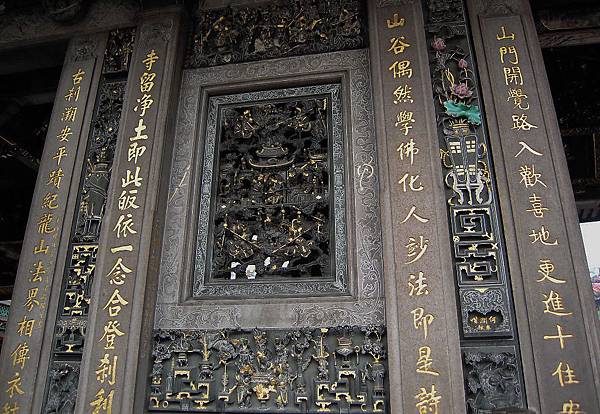 山門開覺路入歡喜地更進十住
山谷偶然學佛化人玅法即是詩
寺留净土即此皈依一念合登刹
古刹溯安平蹟紀龍山法界相傳衣